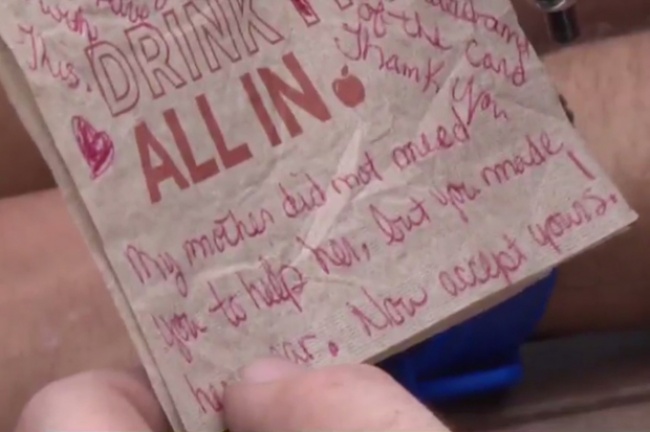 with
This.
DRINK
of the card
Thank you
ALL IN
My mother did not need
you to help her, but you made
ar. Now accept yours.